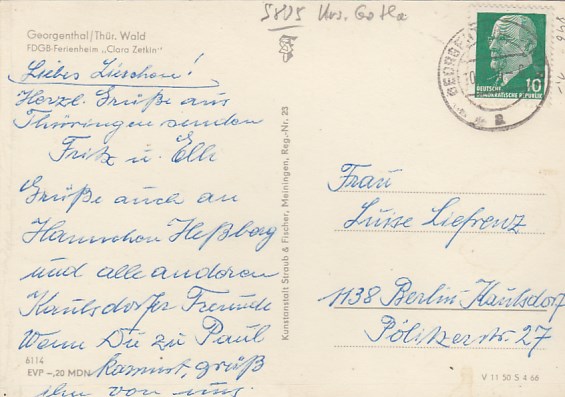 5805 Krs. Gotha
Georgenthal/Thür. Wald
FDGB-Ferienheim „Clara Zetkin"
Liebes Lieschen!
Herzl. Grüße aus
Thüringen senden
Fritz u. Elli
Grüße auch an
Hannchen Heßberg
und alle anderen
Kaulsdorfer Freunde
Wenn Du zu Paul
kommst, grüß
ihn von uns.
6114
EVP –,20 MDN
Kunstanstalt Straub & Fischer, Meiningen, Reg.-Nr. 23
DEUTSCHE
DEMOKRATISCHE REPUBLIK
10
Frau
Luise Liefrenz
1138 Berlin-Kaulsdorf
Pölitzerstr. 27
V 11 50 S 4 66